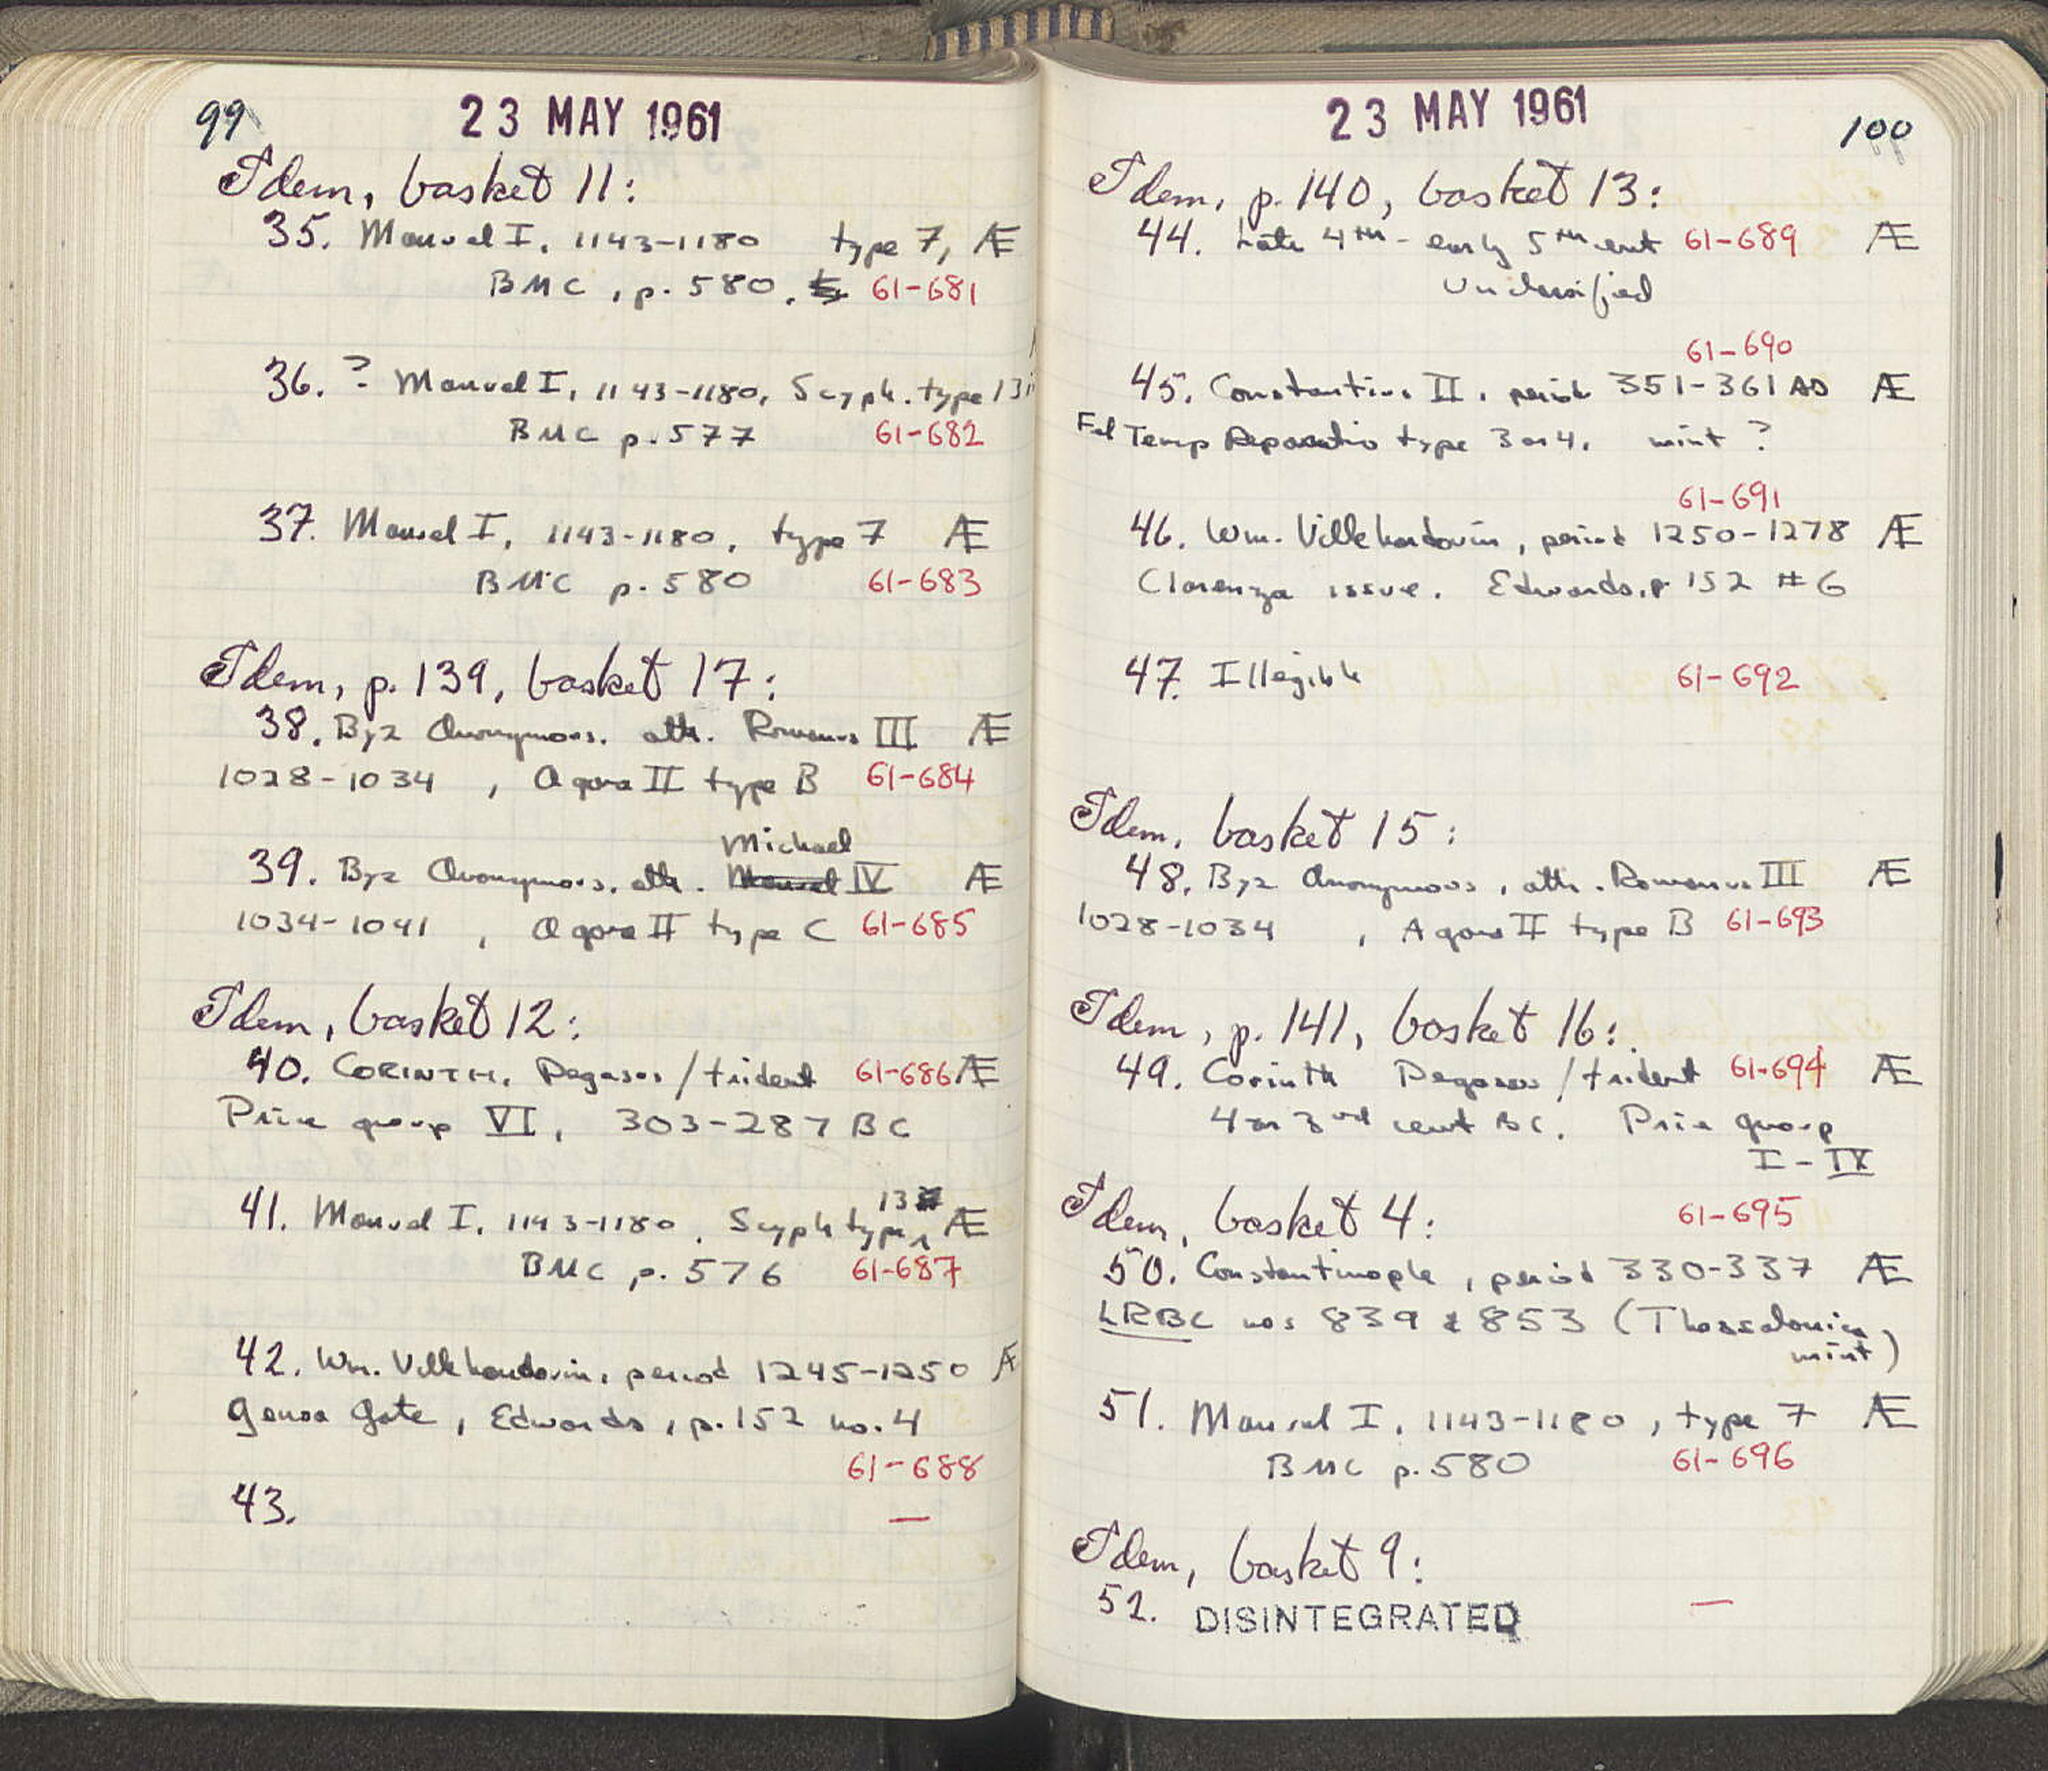 99
23 MAY 1961
Idem, basket 11:
35. Manuel I, 1143-1180 type 7, Æ
BMC, p. 580. 61-681
36. ? Manuel I, 1143-1180, Scyph. type 13
BMC p. 577 61-682
37. Manuel I, 1143-1180, type 7 Æ
BMC p. 580 61-683
Idem, p. 139, basket 17:
38. Byz Anonymous. attr. Romanus III Æ
1028-1034 , Agora II type B 61-684
Michael
39. Byz Anonymous. attr. Manuel IV Æ
1034-1041 , Agora II type C 61-685
Idem, basket 12:
40. CORINTH. Pegasos/trident 61-686 Æ
Price group VI, 303-287 BC
13
41. Manuel I, 1143-1180. Scyph type Æ
BMC p. 576 61-687
42. Wm. Villehardouin, period 1245-1250 Æ
Genoa Gate, Edwards, p. 152 no. 4
61-688
43. —
23 MAY 1961
100
Idem, p. 140, basket 13:
44. Late 4th - early 5th cent 61-689 Æ
Unclassified
61-690
45. Constantius II, period 351-361 AD Æ
Fel Temp Reparatio type 3 or 4. mint ?
61-691
46. Wm. Villehardouin, period 1250-1278 Æ
Clarenza issue. Edwards, p. 152 #6
47. Illegible 61-692
Idem, basket 15:
48. Byz Anonymous, attr. Romanus III Æ
1028-1034 , Agora II type B 61-693
Idem, p. 141, basket 16:
49. Corinth Pegasos/trident 61-694 Æ
4 or 3rd cent BC. Price group
I - IX
Idem, basket 4: 61-695
50. Constantinople, period 330-337 Æ
LRBC nos 839 & 853 (Thessalonica
mint)
51. Manuel I, 1143-1180, type 7 Æ
BMC p. 580 61-696
Idem, basket 9:
52. DISINTEGRATED —